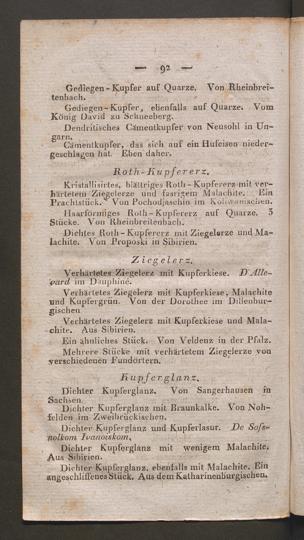 — 92 —
Gediegen-Kupfer auf Quarze. Von Rheinbrei-
tenbach.
Gediegen-Kupfer, ebenfalls auf Quarze. Vom
König David zu Schneeberg.
Dendritisches Cämentkupfer von Neusohl in Un-
garn.
Cämentkupfer, das sich auf ein Hufeisen nieder-
geschlagen hat. Eben daher.
Roth-Kupfererz.
Kristallisirtes, blättriges Roth-Kupfererz mit ver-
härtetem Ziegelerze und fasrigem Malachite. Ein
Prachtstück. Von Pochodjaschin im
Haarförmiges Roth-Kupfererz auf Quarze. 3
Stücke. Von Rheinbreitenbach.
Dichtes Roth-Kupfererz mit Ziegelerze und Ma-
lachite. Von Proposki in Sibirien.
Ziegelerz.
Verhärtetes Ziegelerz mit Kupferkiese. D'Alle-
vard im Dauphiné.
Verhärtetes Ziegelerz mit Kupferkiese, Malachite
und Kupfergrün. Von der Dorothee im Dillenbur-
gischen
Verhärtetes Ziegelerz mit Kupferkiese und Mala-
chite. Aus Sibirien.
Ein ähnliches Stück. Von Veldenz in der Pfalz.
Mehrere Stücke mit verhärtetem Ziegelerze von
verschiedenen Fundörtern.
Kupferglanz.
Dichter Kupferglanz. Von Sangerhausen in
Sachsen.
Dichter Kupferglanz mit Braunkalke. Von Noh-
felden im Zweibrückischen.
Dichter Kupferglanz und Kupferlasur. De
Ivanofskom.
Dichter Kupferglanz mit wenigem Malachite.
Aus Sibirien.
Dichter Kupferglanz, ebenfalls mit Malachite. Ein
angeschliffenes Stück. Aus dem Katharinenburgischen.